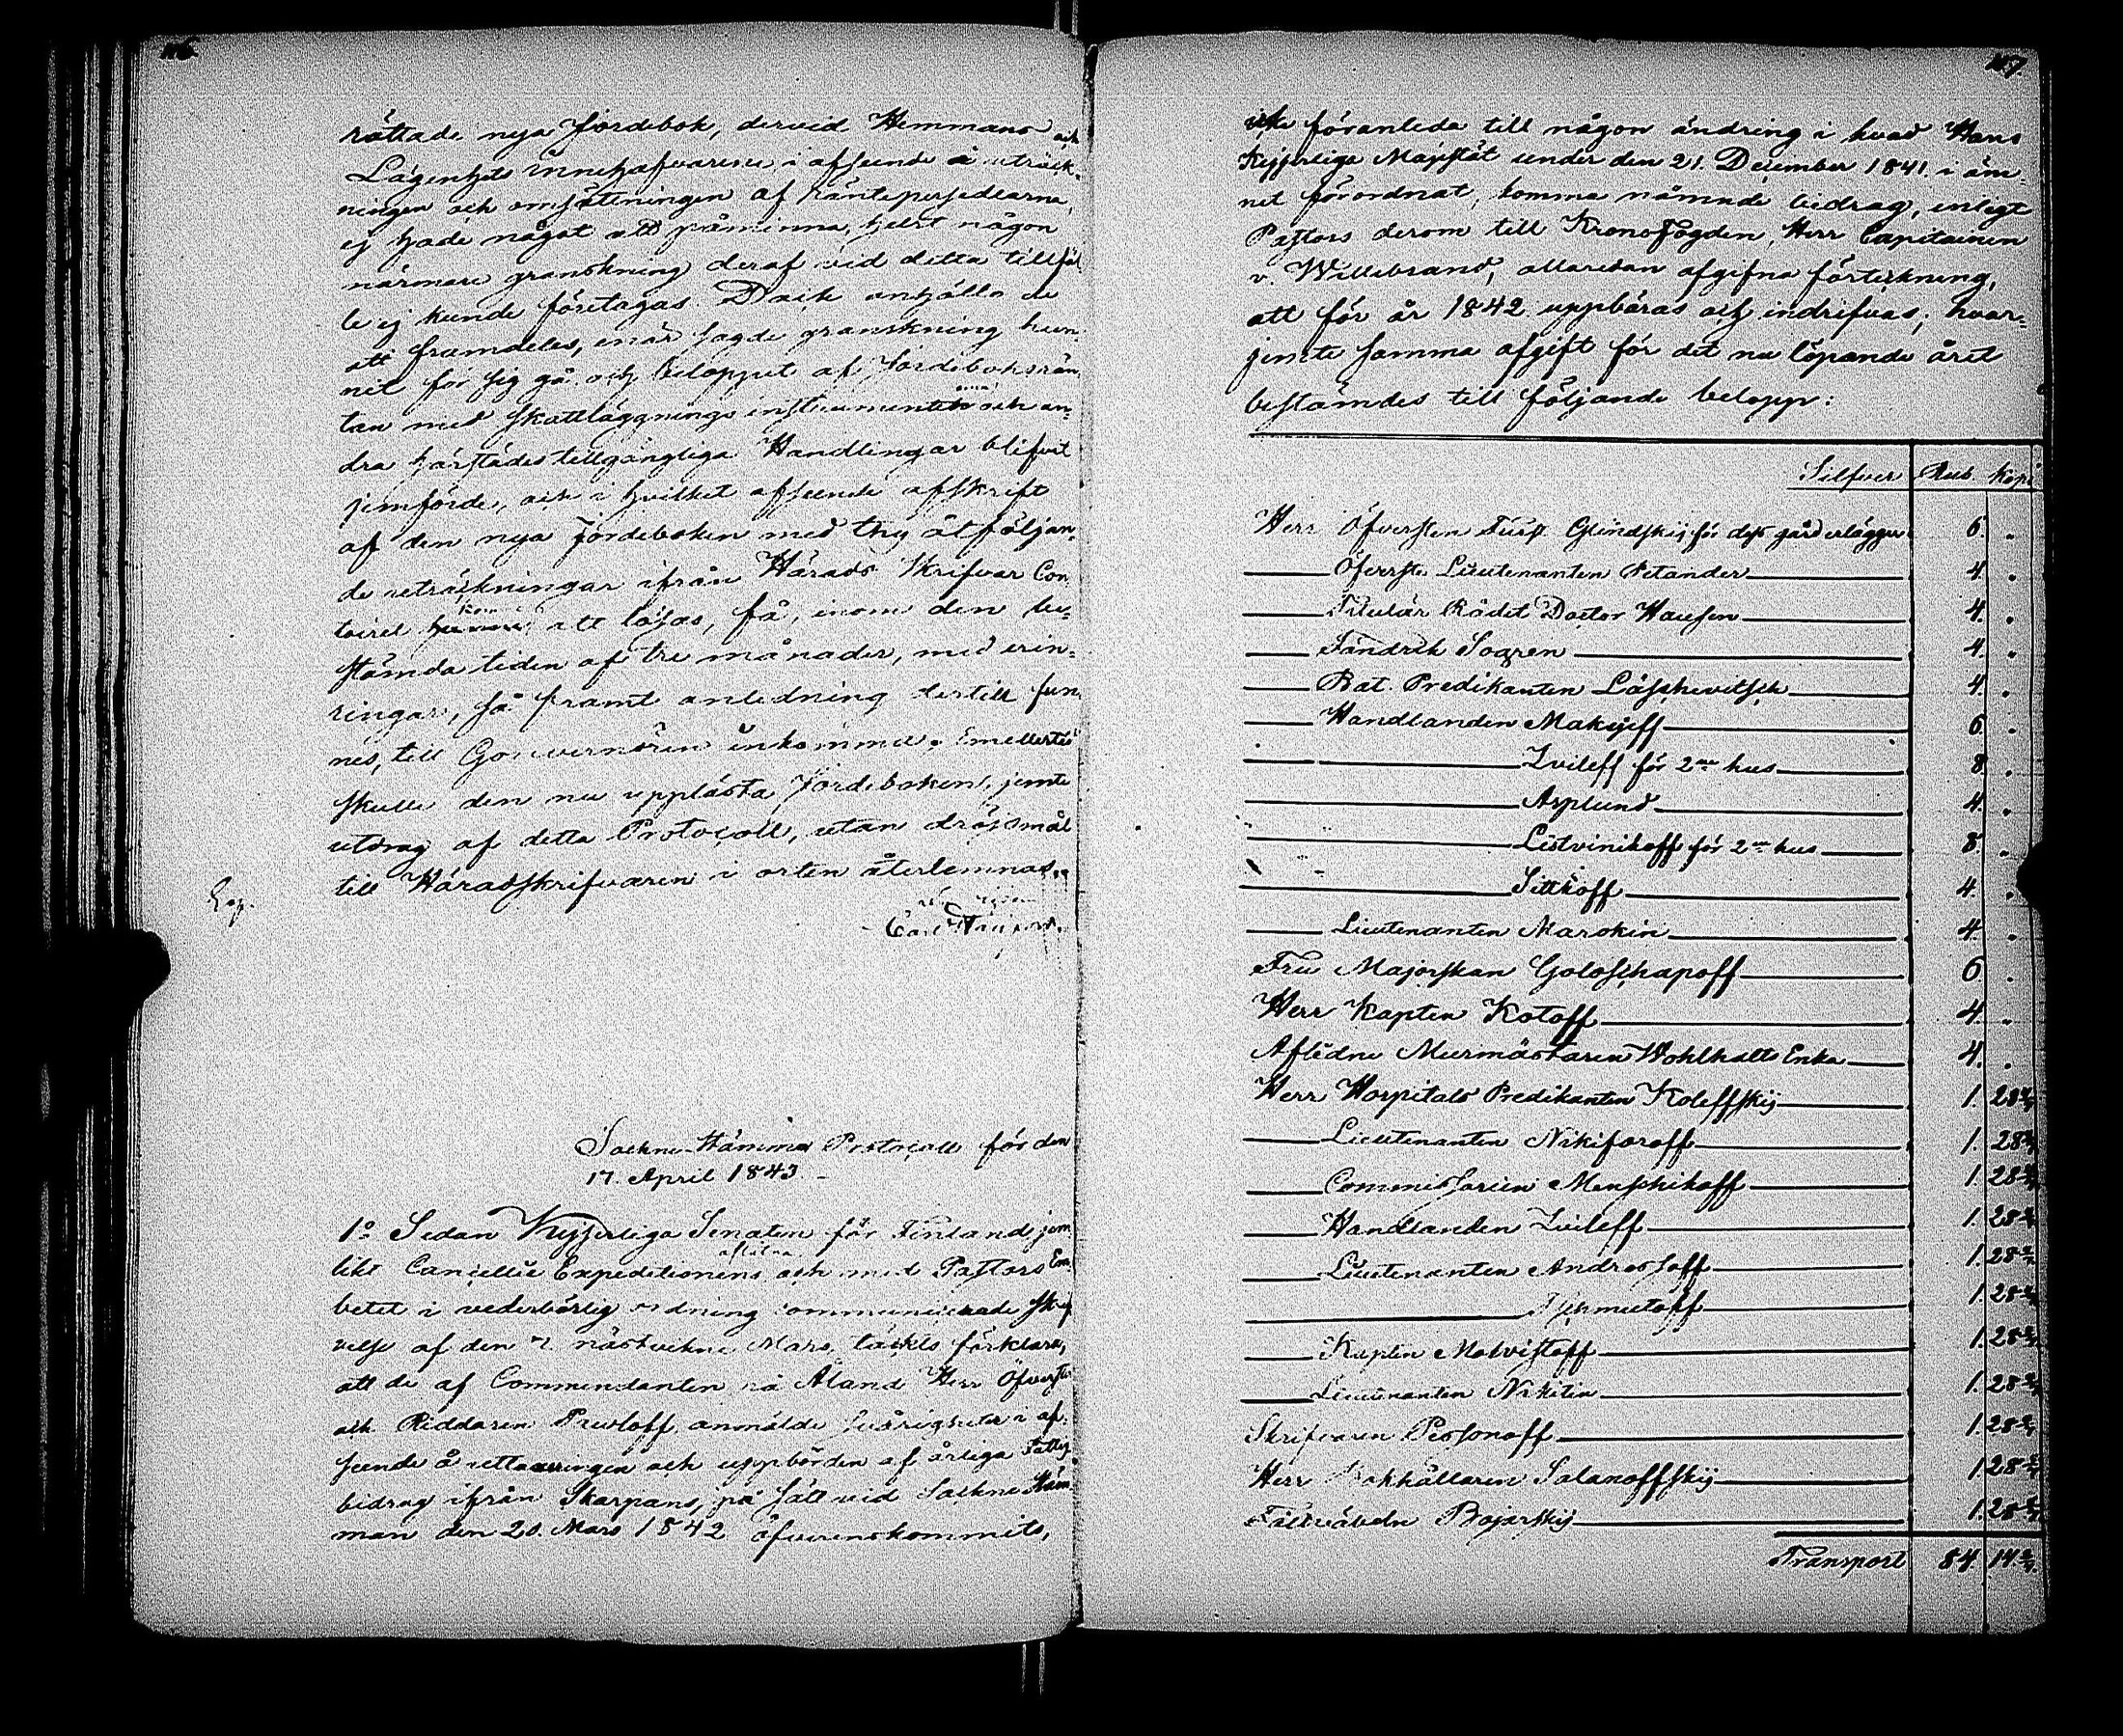 116.
rättade nya Jordebok, dervid Hemmans och
Lägenhets innehafvarene i afseende å uträck-
ningen och omsättningen af ränteperssedlarna,
ej hade något att påminna, helst någon
närmare granskning deraf vid detta tillfäl-
le ej kunde företagas. Dock anhöllo de
att framdeles, enär sagde granskning hun-
nit för sig gå och beloppet af Jordeboksrän-
tan med skattläggnings instrumenterna och an-
dra härstädes tillgängliga Handlingar blifvit
jemförde, och i hvilket afseende afskrift
af den nya Jordeboken med thy åtföljan-
de uträkningar ifrån Härads Skrifvar Con-
toiret kom att lösas, få, inom den be-
stämda tiden af tre månader, med erin-
ringar, så framt anledning dertill fun-
nes, till Gouvernören inkomma. Emellertid
skulle den nu upplästa Jordeboken, jemte
utdrag af detta Protocoll, utan dröjsmål
till Häradsskrifvaren i orten återlemnas.
Exp.
Carl
Sockne Stämma Protocoll för den
17. April 1843.
1o Sedan Kejserliga Senaten för Finland jem-
likt Cancellie Expeditionens aflåtna och med Pastors Em-
betet i vederbörlig ordning communicerade skrif-
velse af den 7. nästvekne Mars, täckts förklara,
att de af Commendanten på Åland Herr Öfverste
och Riddaren Pawloff anmälde svårigheter i af-
seende å utta ringen och uppbörden af årliga Fattig
bidrag ifrån Skarpans, på sätt vid Sockne Stäm-
man den 20. Mars 1842 öfverenskommits,
117.
icke föranleda till någon ändring i hvad Hans
Kejserliga Majestät under den 21. December 1841 i äm-
net förordnat, komma nämnde bidrag, enligt
Pastors derom till KronoFogden, Herr Capitainen
v. Willebrand, allaredan afgifna förteckning,
att för år 1842 uppbäras och indrifvas; hvar-
jemte samma afgift för det nu löpande året
bestämdes till följande belopp:
Silfver Rub. Kop.
Herr Öfversten Furst Glindskij för dess gård erlägger 6. "
— Öfverste Lieutenanten Petander — 4. "
— Titulär Rådet Doctor Hausen — 4. "
— Fändrik Sogren — 4. "
— Bat. Predikanten Läschevitsch — 4. "
— Handlanden Maksjeff — 6. "
— — Zvileff för 2ne hus — 8. "
— Asplund — 4. "
— Listvinikoff för 2ne hus — 8. "
— Sittkoff — 4. "
— Lieutenanten Marokin — 4. "
Fru Majorskan Goloschapoff — 6 "
Herr Kapten Kotoff — 4. "
Aflidne Murmästaren Wohlhalts Enka — 4. "
Herr Hospitals Predikanten Koleffskij — 1. 28 4/7
— Lieutenanten Nikiforoff — 1. 28 4/7
— Commissarien Menschikoff — 1. 28 4/7
— Handlanden Zvileff — 1. 28 4/7
— Lieutenanten Androssoff — 1. 28 4/7
— Achmutoff — 1. 28 4/7
— Kapten Molvistoff — 1. 28 4/7
— Lieutenanten Nikitin — 1. 28 4/7
Skrifvaren Perssonoff — 1. 28 4/7
Herr Bokhållaren Salanoffskij — 1. 28 4/7
Fältväbeln Bojarskij — 1. 28 4/7
Transport 84 14 2/7